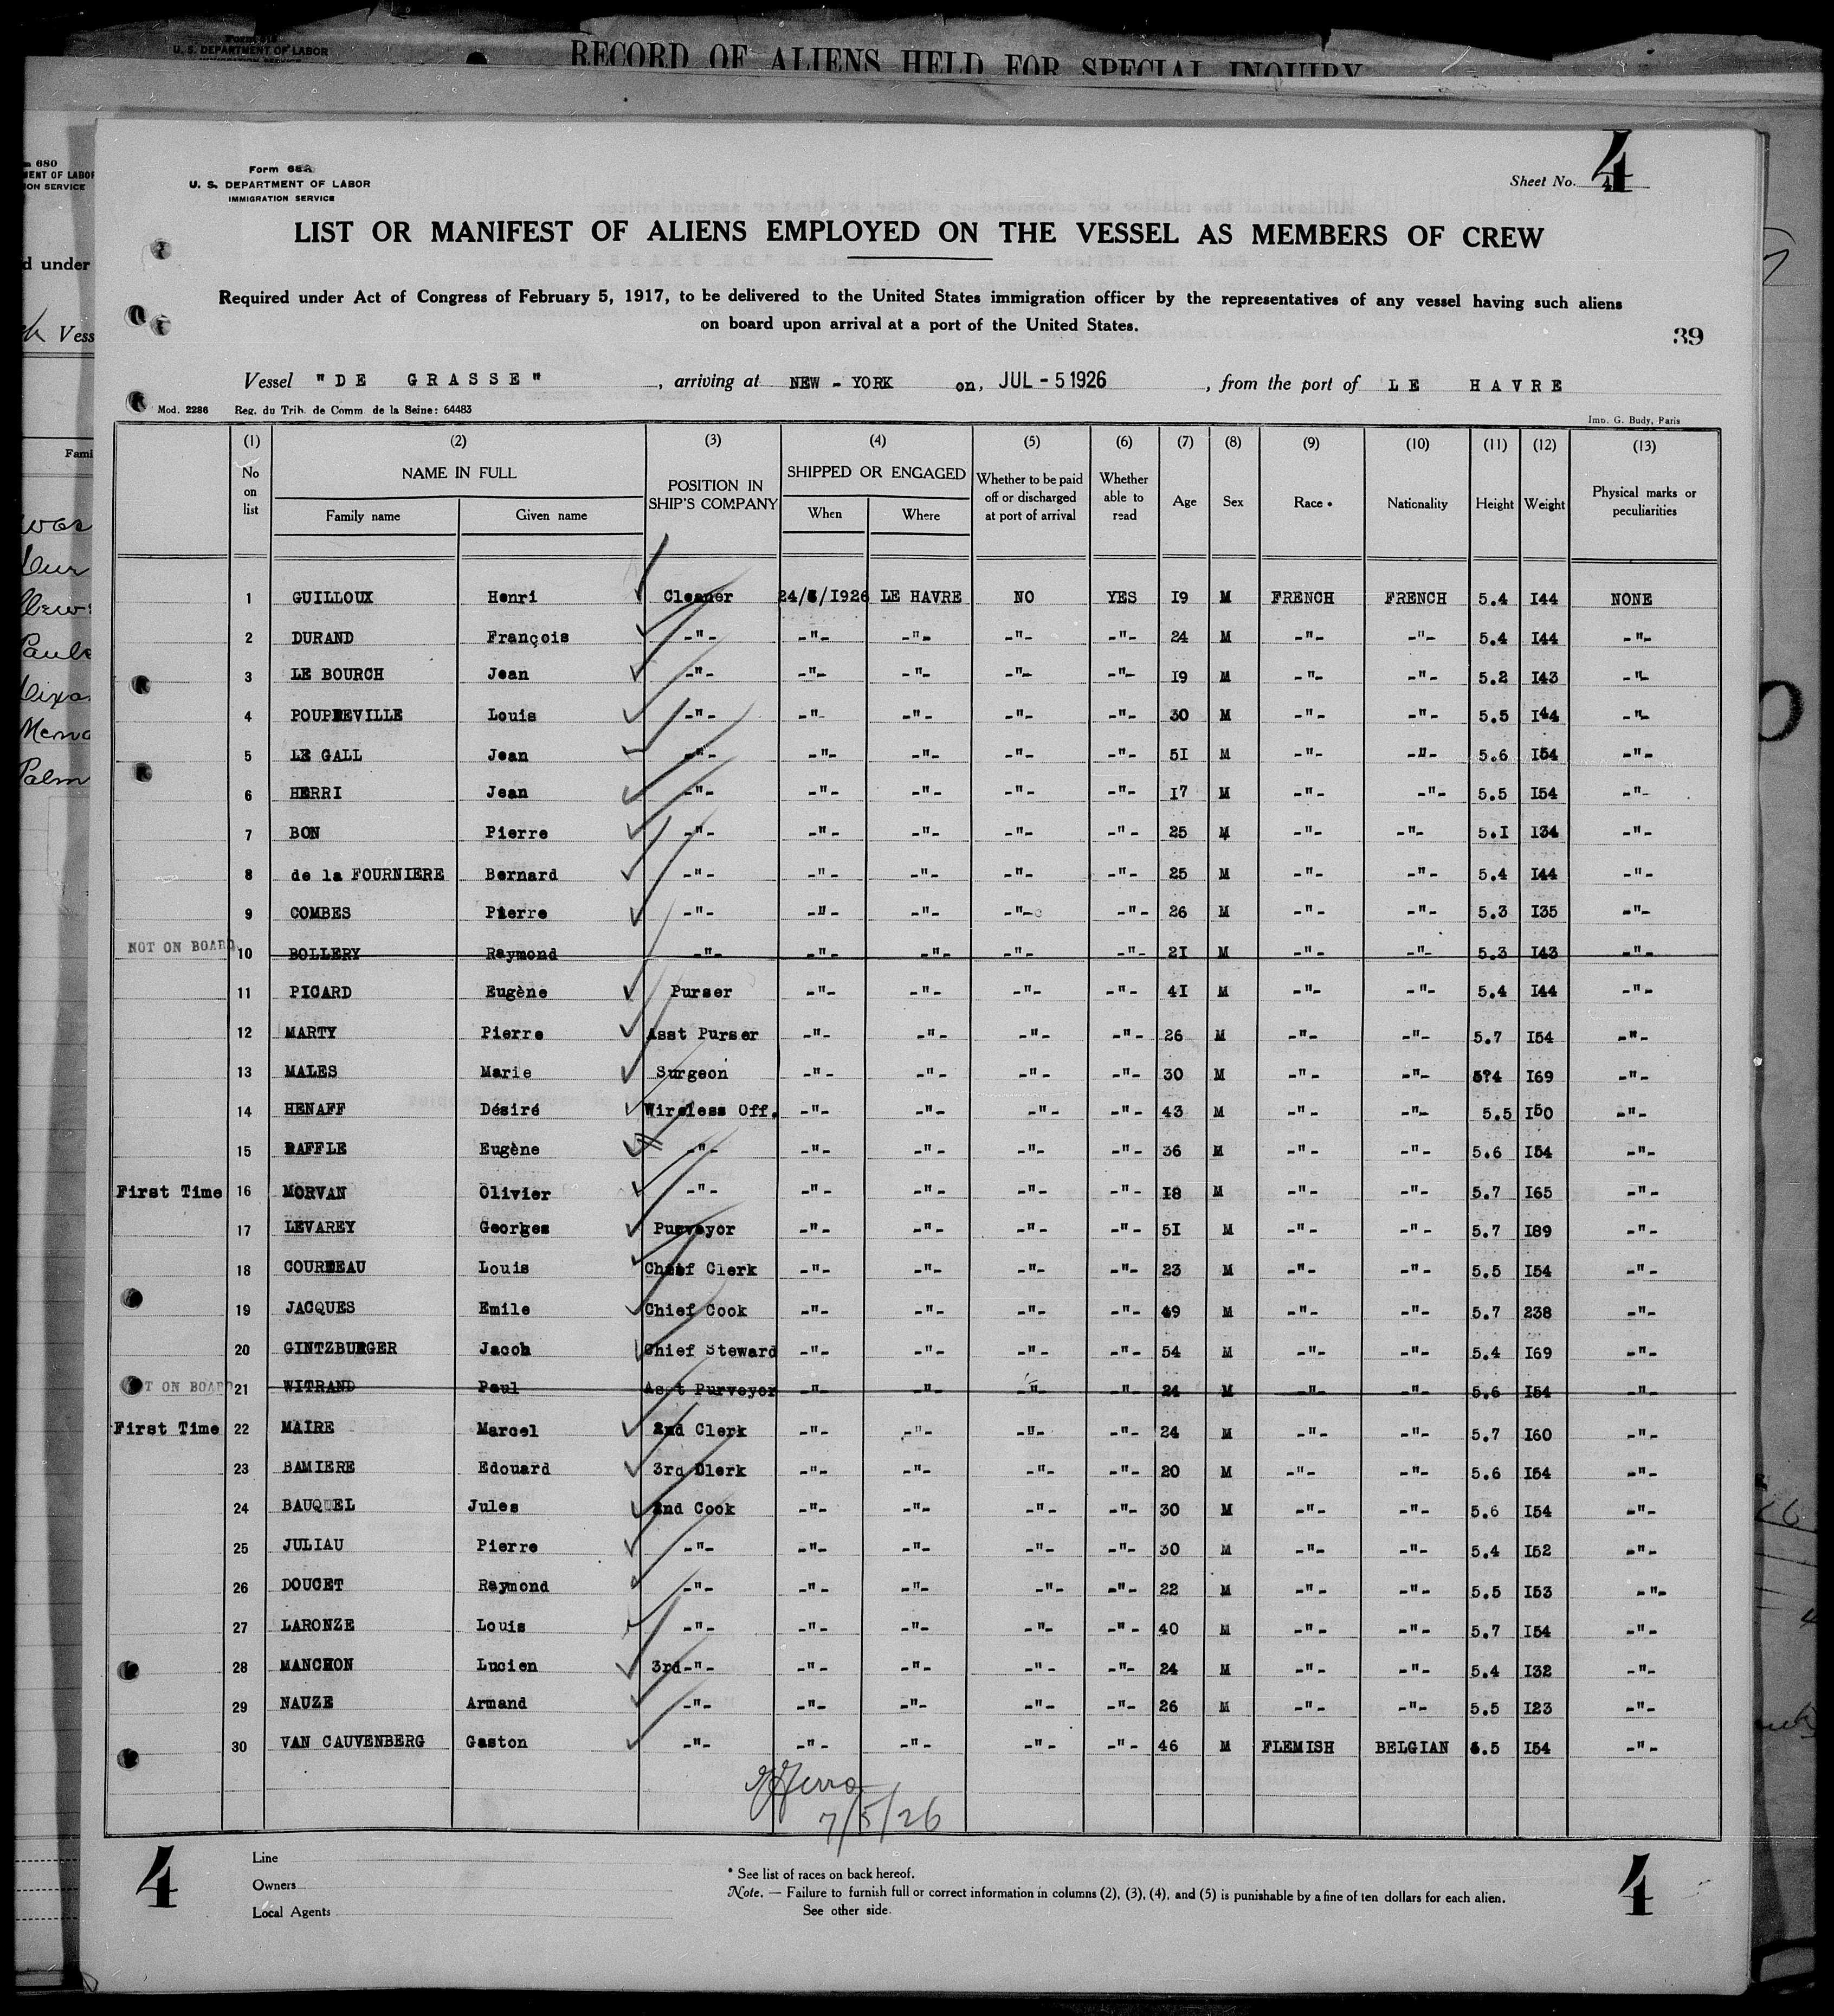 Form 618
U. S. DEPARTMENT OF LABOR
RECORD OF ALIENS HELD FOR SPECIAL INQUIRY
680
MENT OF LABOR
ION SERVICE
d under
Vess
Fami
Form 689
U. S. DEPARTMENT OF LABOR
IMMIGRATION SERVICE
Sheet No. 4
4
LIST OR MANIFEST OF ALIENS EMPLOYED ON THE VESSEL AS MEMBERS OF CREW
Required under Act of Congress of February 5, 1917, to be delivered to the United States immigration officer by the representatives of any vessel having such aliens
on board upon arrival at a port of the United States.
39
Vessel "DE GRASSE", arriving at NEW - YORK on, JUL - 5 1926, from the port of LE HAVRE
Mod. 2286 Reg. du Trib. de Comm. de la Seine: 64483 Imp. G. Budy, Paris
(1) (2) (3) (4) (5) (6) (7) (8) (9) (10) (11) (12) (13)
No on list NAME IN FULL Family name Given name POSITION IN SHIP'S COMPANY SHIPPED OR ENGAGED When Where Whether to be paid off or discharged at port of arrival Whether able to read Age Sex Race * Nationality Height Weight Physical marks or peculiarities
1 GUILLOUX Henri Cleaner 24/6/1926 LE HAVRE NO YES 19 M FRENCH FRENCH 5.4 144 NONE
2 DURAND François -"- -"- -"- -"- -"- 24 M -"- -"- 5.4 144 -"-
3 LE BOURCH Jean -"- -"- -"- -"- -"- 19 M -"- -"- 5.2 143 -"-
4 POUPREVILLE Louis -"- -"- -"- -"- -"- 30 M -"- -"- 5.5 144 -"-
5 LE GALL Jean -"- -"- -"- -"- -"- 51 M -"- -"- 5.6 154 -"-
6 HERRI Jean -"- -"- -"- -"- -"- 17 M -"- -"- 5.5 154 -"-
7 BON Pierre -"- -"- -"- -"- -"- 25 M -"- -"- 5.1 134 -"-
8 de la FOURNIERE Bernard -"- -"- -"- -"- -"- 25 M -"- -"- 5.4 144 -"-
9 COMBES Pierre -"- -"- -"- -"- -"- 26 M -"- -"- 5.3 135 -"-
NOT ON BOARD 10 BOLLERY Raymond -"- -"- -"- -"- -"- 21 M -"- -"- 5.3 143 -"-
11 PICARD Eugène Purser -"- -"- -"- -"- 41 M -"- -"- 5.4 144 -"-
12 MARTY Pierre Asst Purser -"- -"- -"- -"- 26 M -"- -"- 5.7 154 -"-
13 MALES Marie Surgeon -"- -"- -"- -"- 30 M -"- -"- 5?4 169 -"-
14 HENAFF Désiré Wireless Off. -"- -"- -"- -"- 43 M -"- -"- 5.5 150 -"-
15 RAFFLE Eugène -"- -"- -"- -"- -"- 36 M -"- -"- 5.6 154 -"-
First Time 16 MORVAN Olivier -"- -"- -"- -"- -"- 18 M -"- -"- 5.7 165 -"-
17 LEVAREY Georges Purveyor -"- -"- -"- -"- 51 M -"- -"- 5.7 189 -"-
18 COURDEAU Louis Chief Clerk -"- -"- -"- -"- 23 M -"- -"- 5.5 154 -"-
19 JACQUES Emile Chief Cook -"- -"- -"- -"- 49 M -"- -"- 5.7 238 -"-
20 GINTZBURGER Jacob Chief Steward -"- -"- -"- -"- 54 M -"- -"- 5.4 169 -"-
NOT ON BOARD 21 WITRAND Paul Asst Purveyor -"- -"- -"- -"- 24 M -"- -"- 5.6 154 -"-
First Time 22 MAIRE Marcel 2nd Clerk -"- -"- -"- -"- 24 M -"- -"- 5.7 160 -"-
23 BAMIERE Edouard 3rd Clerk -"- -"- -"- -"- 20 M -"- -"- 5.6 154 -"-
24 BAUQUEL Jules 2nd Cook -"- -"- -"- -"- 30 M -"- -"- 5.6 154 -"-
25 JULIAU Pierre -"- -"- -"- -"- -"- 30 M -"- -"- 5.4 152 -"-
26 DOUCET Raymond -"- -"- -"- -"- -"- 22 M -"- -"- 5.5 153 -"-
27 LARONZE Louis -"- -"- -"- -"- -"- 40 M -"- -"- 5.7 154 -"-
28 MANCHON Lucien 3rd -"- -"- -"- -"- -"- 24 M -"- -"- 5.4 132 -"-
29 NAUZE Armand -"- -"- -"- -"- -"- 26 M -"- -"- 5.5 123 -"-
30 VAN CAUVENBERG Gaston -"- -"- -"- -"- -"- 46 M FLEMISH BELGIAN 5.5 154 -"-
7/5/26
4
Line
Owners
Local Agents
* See list of races on back hereof.
Note. — Failure to furnish full or correct information in columns (2), (3), (4), and (5) is punishable by a fine of ten dollars for each alien.
See other side.
4